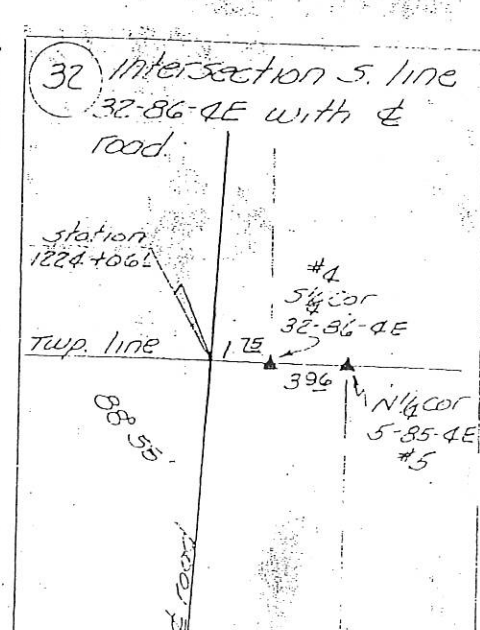 32 Intersection S. line
32-86-4E with ℄
road.
station
1224+06±
#4
S¼ Cor
32-86-4E
Twp. line
1.75
396
N¼ cor
5-85-4E
#5
88°55'
℄ road